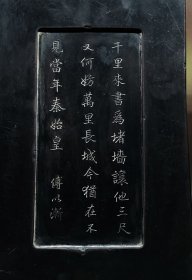 千里來書爲堵墻讓他三尺
又何妨萬里長城今猶在不
見當年秦始皇 傅以漸